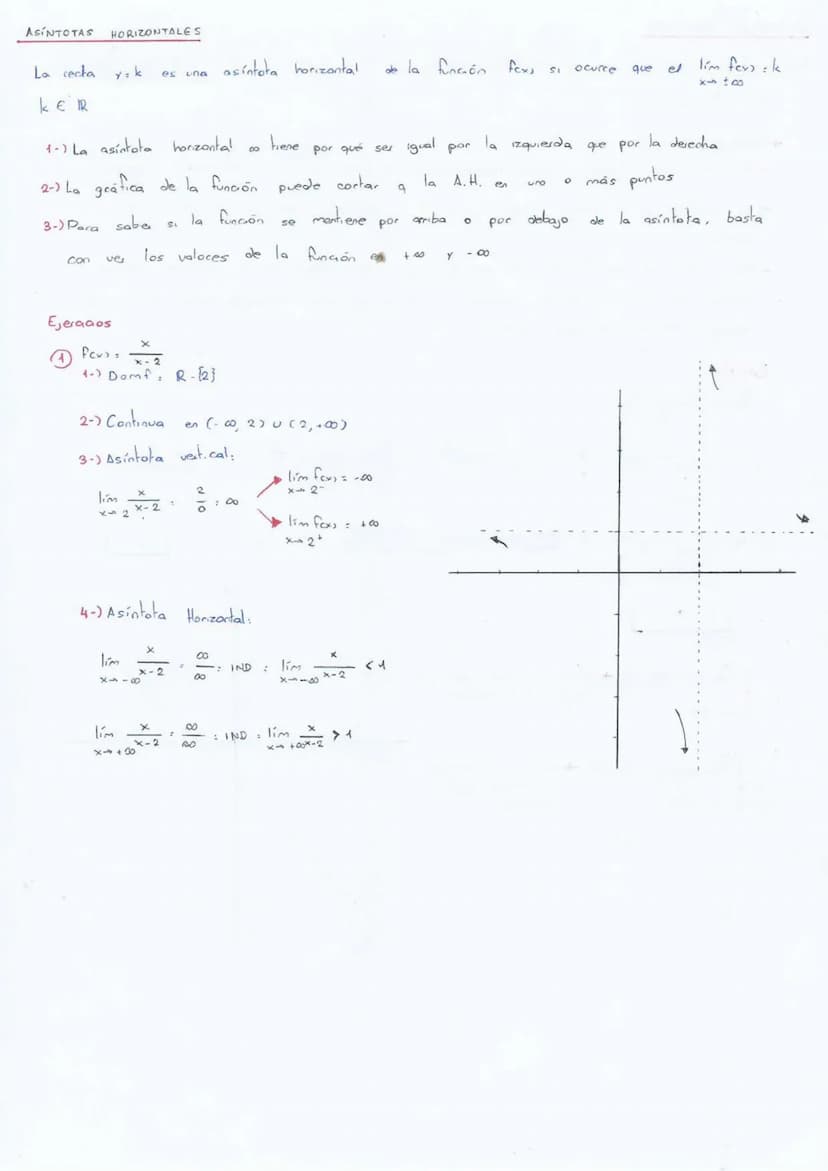 ASÍNTOTAS HORIZONTALES
La recta y=k es una asíntota horizontal de la función f(x) si ocurre que el lím f(x) = k
x→ ±∞
k ∈ ℝ
1-) La asíntota horizontal no tiene por qué ser igual por la izquierda que por la derecha
2-) La gráfica de la función puede cortar a la A.H. en uno o más puntos
3-) Para saber si la función se mantiene por arriba o por debajo de la asíntota, basta
con ver los valores de la función en +∞ y -∞
Ejercicios
① f(x) = x/(x-2)
1-) Domf = R-{2}
2-) Continua en (-∞, 2) ∪ (2, +∞)
3-) Asíntota vertical:
lím x→2 x/(x-2) = 2/0 = ∞
lím f(x) = -∞
x→2⁻
lím f(x) = +∞
x→2⁺
4-) Asíntota Horizontal:
lím x→-∞ x/(x-2) = ∞/∞ = IND = lím x→-∞ x/(x-2) < 1
lím x→+∞ x/(x-2) = ∞/∞ = IND = lím x→+∞ x/(x-2) > 1